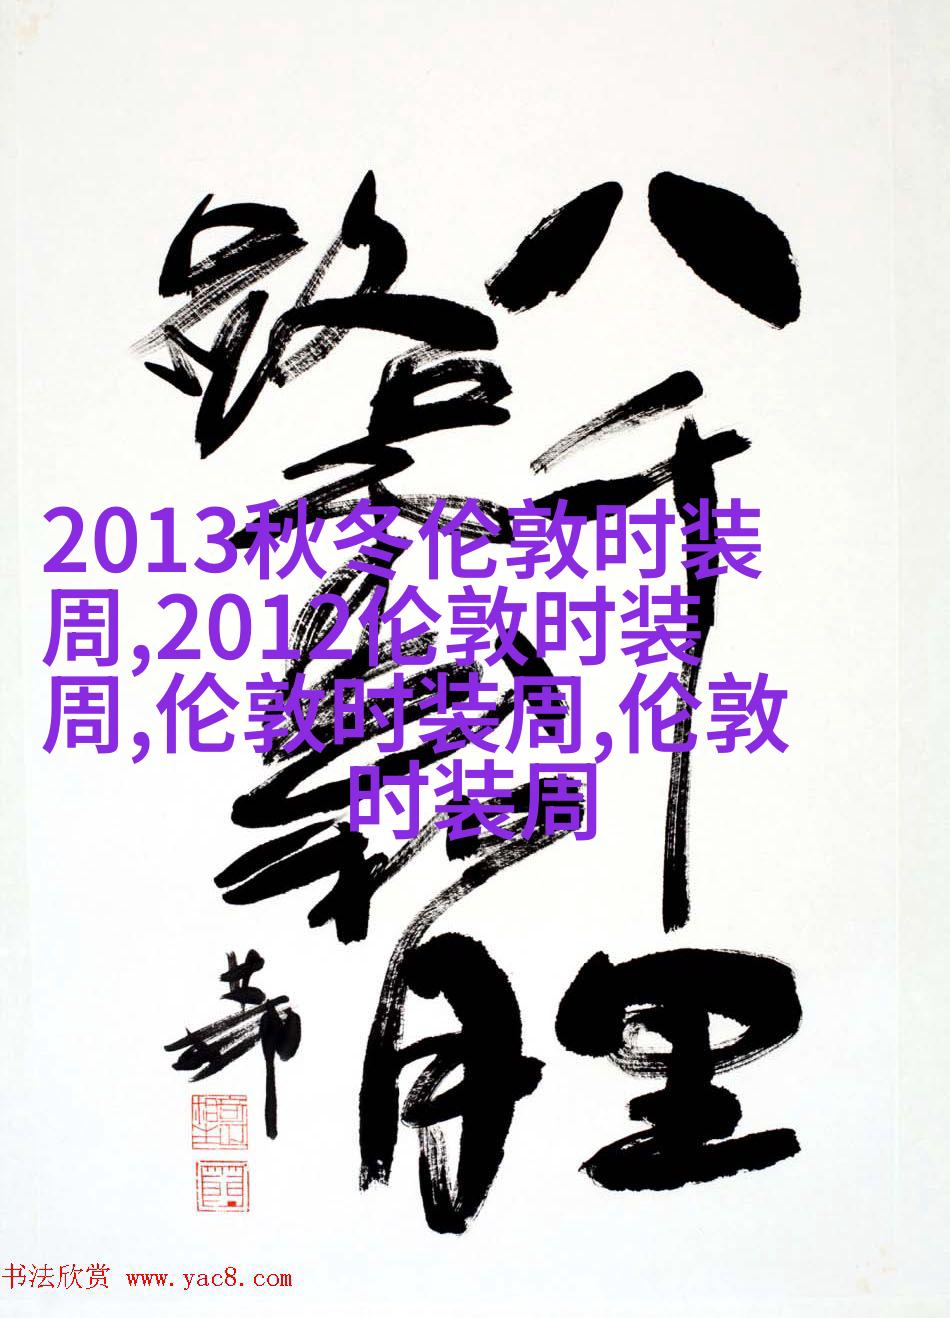 八千里
路云和月
2013秋冬伦敦时装
周,2012伦敦时装
周,伦敦时装周,伦敦
时装周
书法欣赏 www.yac8.com